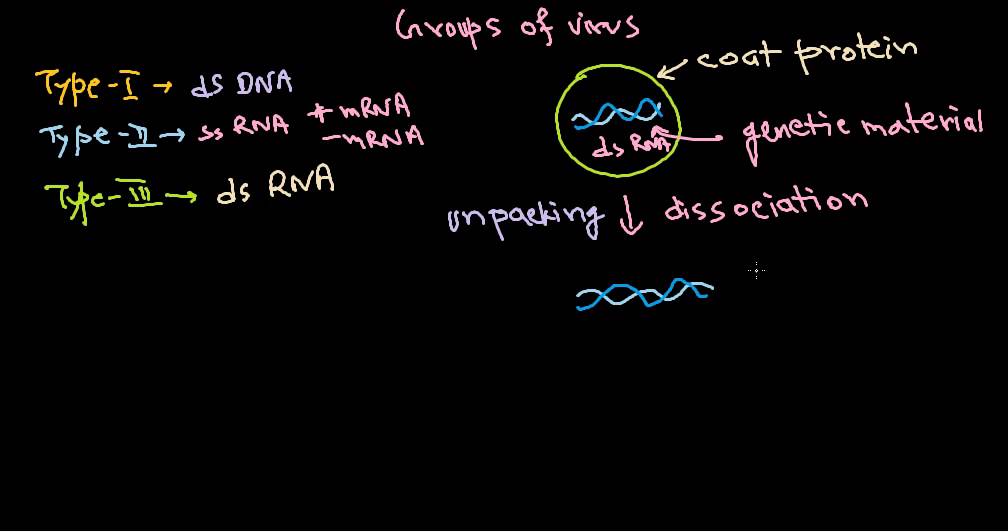 Groups of virus
Type-I → ds DNA
Type-II → ss RNA + mRNA
- mRNA
Type-III → ds RNA
coat protein
ds RNA
genetic material
unpacking ↓ dissociation